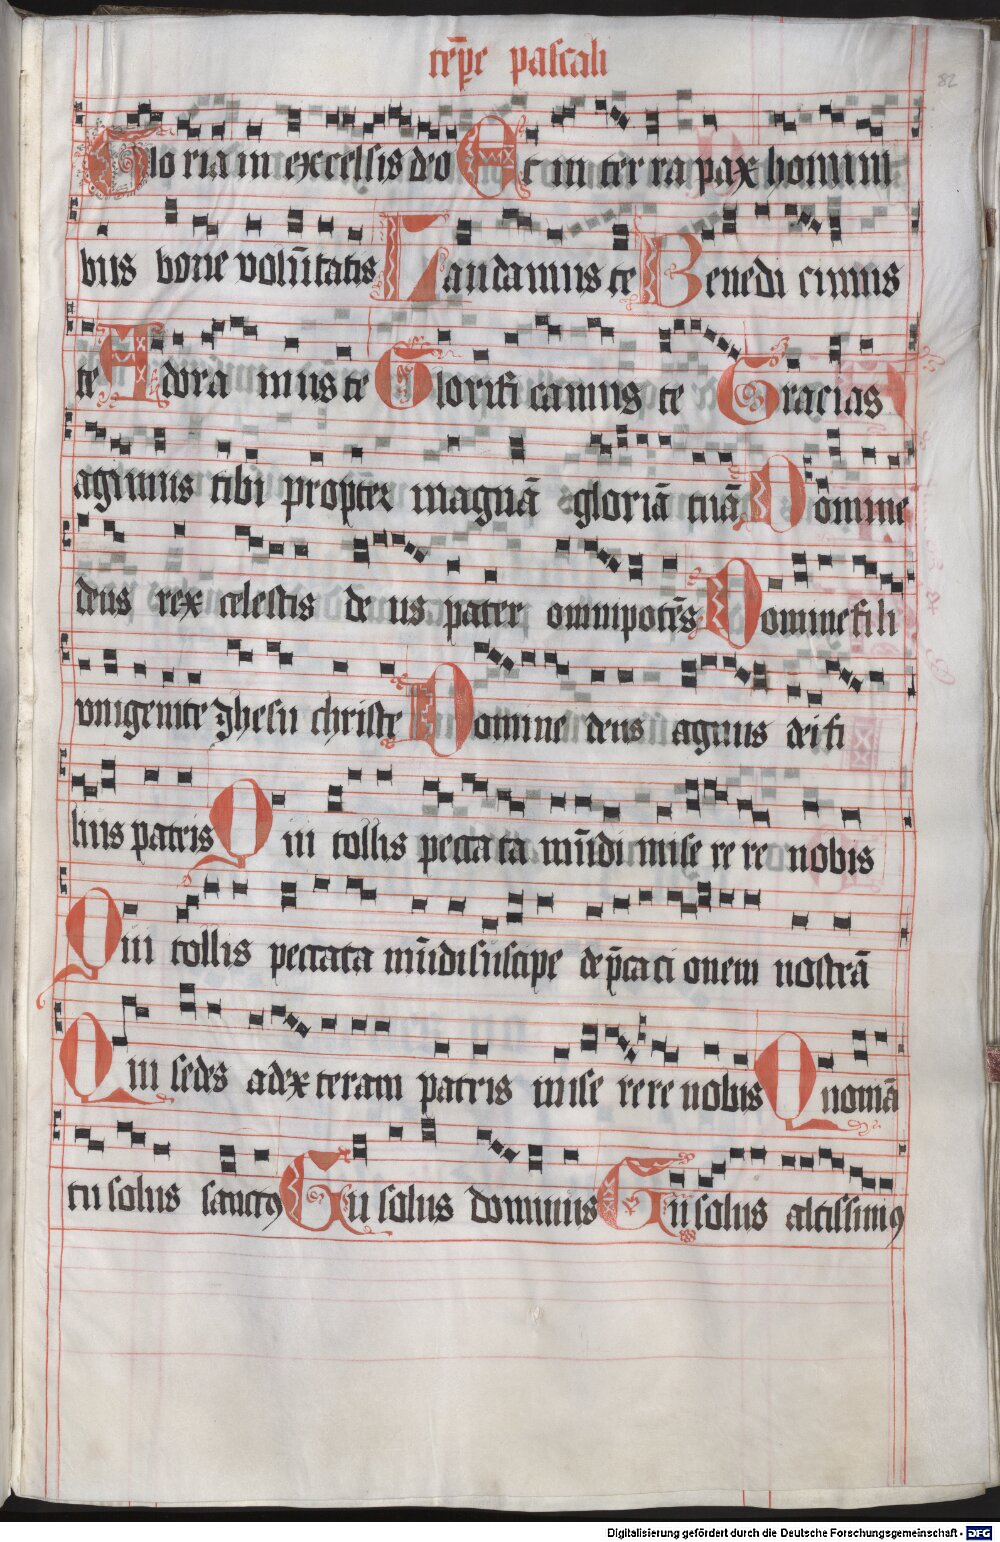 te̅p̲e pascali
82
Glo ria in excelsis deo Et in ter ra pax homini
bus bone volu̅tatis Laudamus te Benedi cimus
te Adora mus te Glorifi camus te Gracias
agimus tibi propter magna̅ gloria̅ tua̅ Domine
deus rex celestis de us pater omnipote̅s Domine fi li
unigenite Jhesu christe Domine deus agnus dei fi
lius patris Qui tollis peccata ta mu̅di mise re re nobis
Qui tollis peccata mu̅di suscipe dep̅cati onem nostra̅
Qui sedes ad ex teram patris mise rere nobis Qnoma̅
tu solus sanctꝰ Tu solus dominus Tu solus altissimꝰ
Digitalisierung gefördert durch die Deutsche Forschungsgemeinschaft - DFG